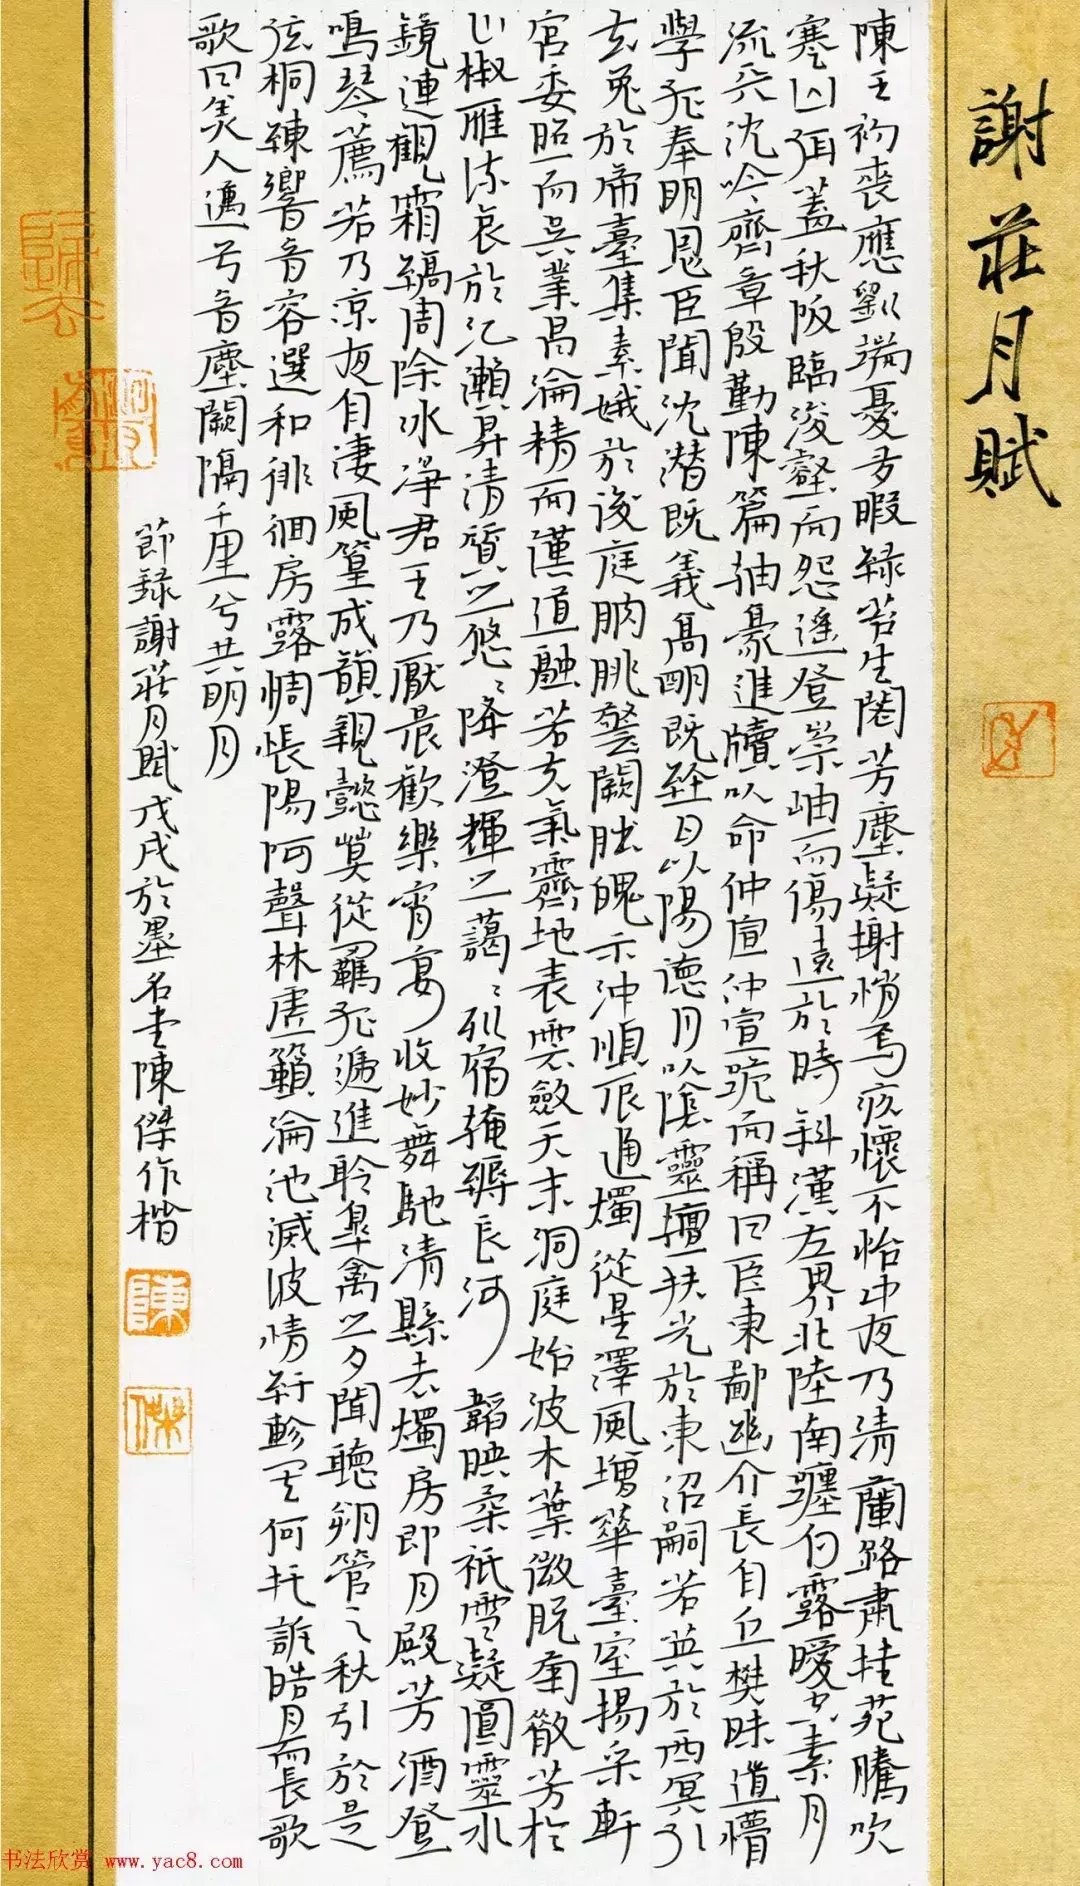 謝莊月賦
陳王初喪應劉端憂多暇綠苔生閣芳塵凝榭悄焉疚懷不怡中夜乃清蘭路肅桂苑騰吹
寒山弭蓋秋阪臨浚壑而怨遙登崇岫而傷遠於時斜漢左界北陸南躔白露曖空素月
流天沈吟齊章殷勤陳篇抽毫進牘以命仲宣仲宣跪而稱曰臣東鄙幽介長自丘樊昧道懵
學孤奉明恩臣聞沈潛既義高明既經日以陽德月以陰靈擅扶光於東沼嗣若英於西冥引
玄兔於帝臺集素娥於後庭朒朓警闕朏魄示沖順辰通燭從星澤風增華臺室揚采軒
宮委照而吳業昌淪精而漢道融若夫氣霽地表雲斂天末洞庭始波木葉微脫菊散芳於
山椒雁流哀於江瀨昇清質之悠〻降澄輝之藹〻列宿掩縟長河韜映柔祇雪凝圓靈水
鏡連觀霜縞周除冰淨君王乃厭晨歡樂宵宴收妙舞馳清縣去燭房即月殿芳酒登
鳴琴薦若乃涼夜自淒風篁成韻親懿莫從羈孤遞進聆皋禽之夕聞聽朔管之秋引於是
弦桐練響音容選和徘徊房露惆悵陽阿聲林虛籟淪池滅波情紆軫其何托訴皓月而長歌
歌曰美人邁兮音塵闕隔千里兮共明月
節錄謝莊月賦戊戌於墨名堂陳傑作楷
陳
傑
书法欣赏 www.yac8.com